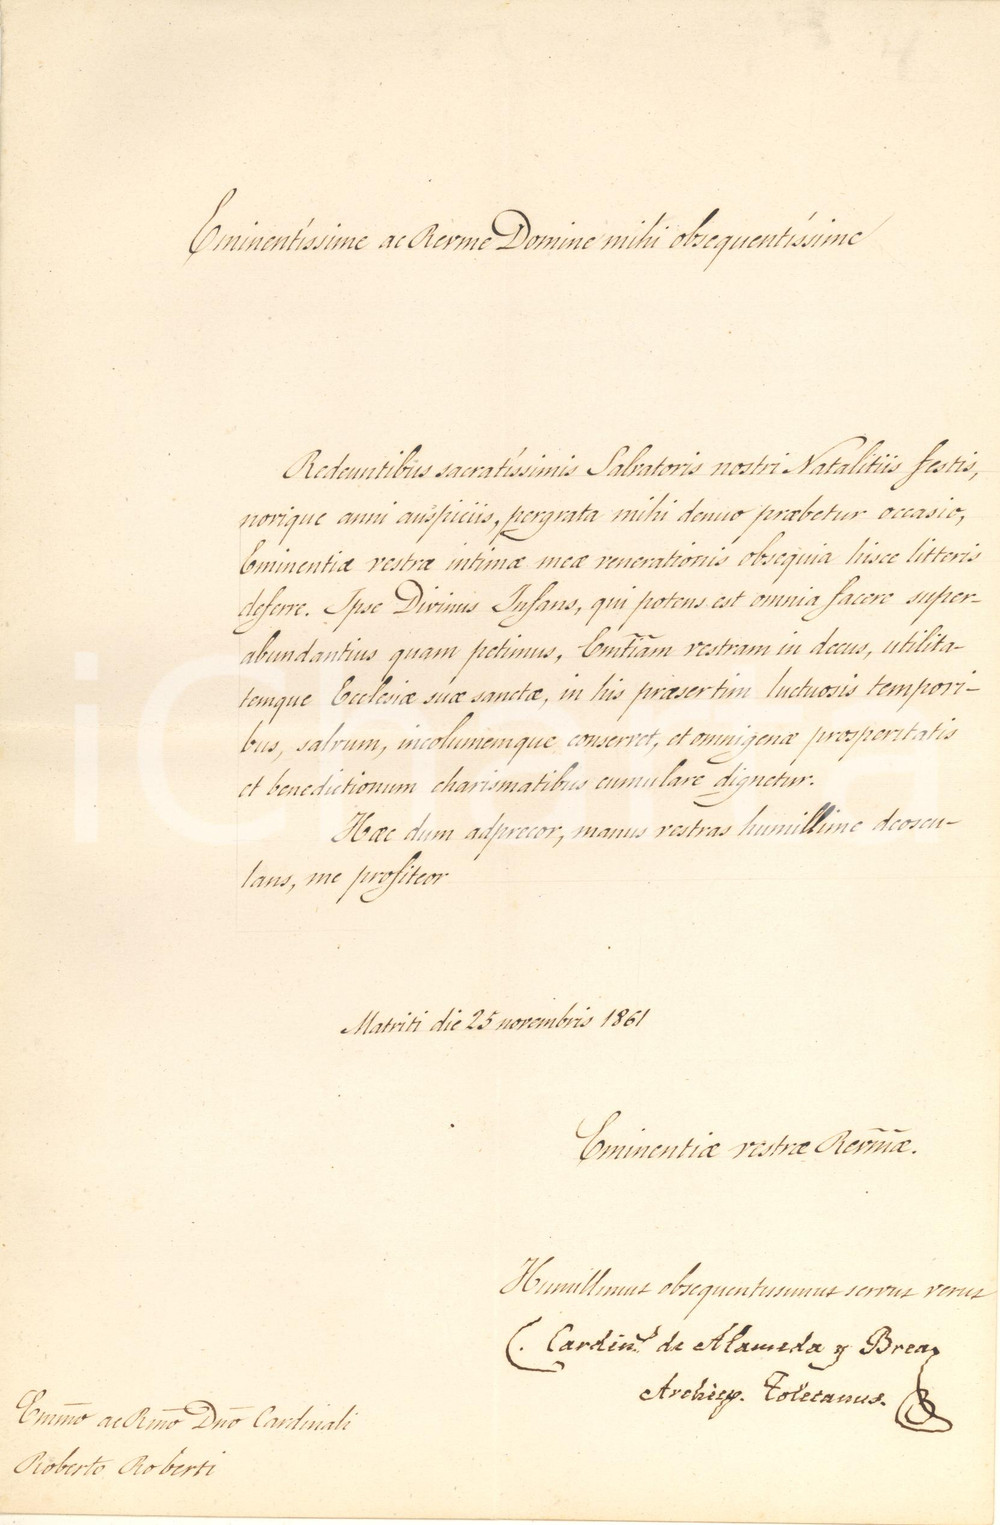 Eminentissime ac Rerme Domine mihi obsequentissime
Redeuntibus sacratissimis Salvatoris nostri Natalitiis festis,
novique anni auspiciis, pergrata mihi denuo præbetur occasio,
Eminentiæ vestræ intimæ meæ venerationis obsequia hisce litteris
deferre. Ipse Divinus Infans, qui potens est omnia facere super-
abundantius quam petimus, Emtiam vestram in decus, utilita-
temque Ecclesiæ suæ sanctæ, in his præsertim luctuosis tempori-
bus, salvum, incolumemque conservet, et omnigenæ prosperitatis
et benedictionum charismatibus cumulare dignetur.
Hæc dum adprecor, manus vestras humillime deoscu-
lans, me profiteor
Matriti die 25 novembris 1861
Eminentiæ vestræ Rermæ.
Humillimus obsequentissimus servus verus
C. Cardin.l de Alameda y Brea,
Archiep. Toletanus.
Emmo ac Rmo Dno Cardinali
Roberto Roberti